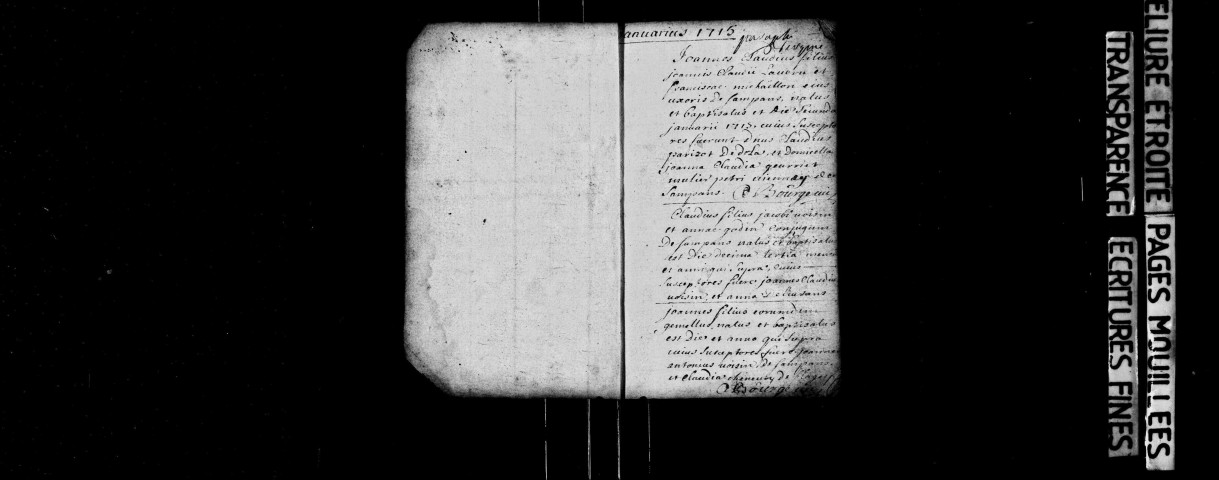 anuarius 1715
Joannes Claudius filius
joannis Claudii et
franciscae eius
uxoris de sampans, natus
et baptisatus est die secunda
januarii 1715. cuius suscepto
res fuerunt dnus Claudius
parizot De dola, et Domicella
joanna Claudia
mulier petri
sampans. Bourge
Claudius filius jacobi voisin
et annae godin conjugum
De sampans natus et baptisatus
est Die decima tertia mensis
et anni qui supra, cuius
susceptores fuere joannes Claudius
voisin, et anna
joannes filius eorumdem
gemellus, natus et baptisatus
est Die et anno qui supra
cuius susceptores fuere joannes
antonius voisin de sampans,
et Claudia de
Bourge
ELIURE ETROITE
PAGES MOUILLEES
TRANSPARENCE
ECRITURES FINES